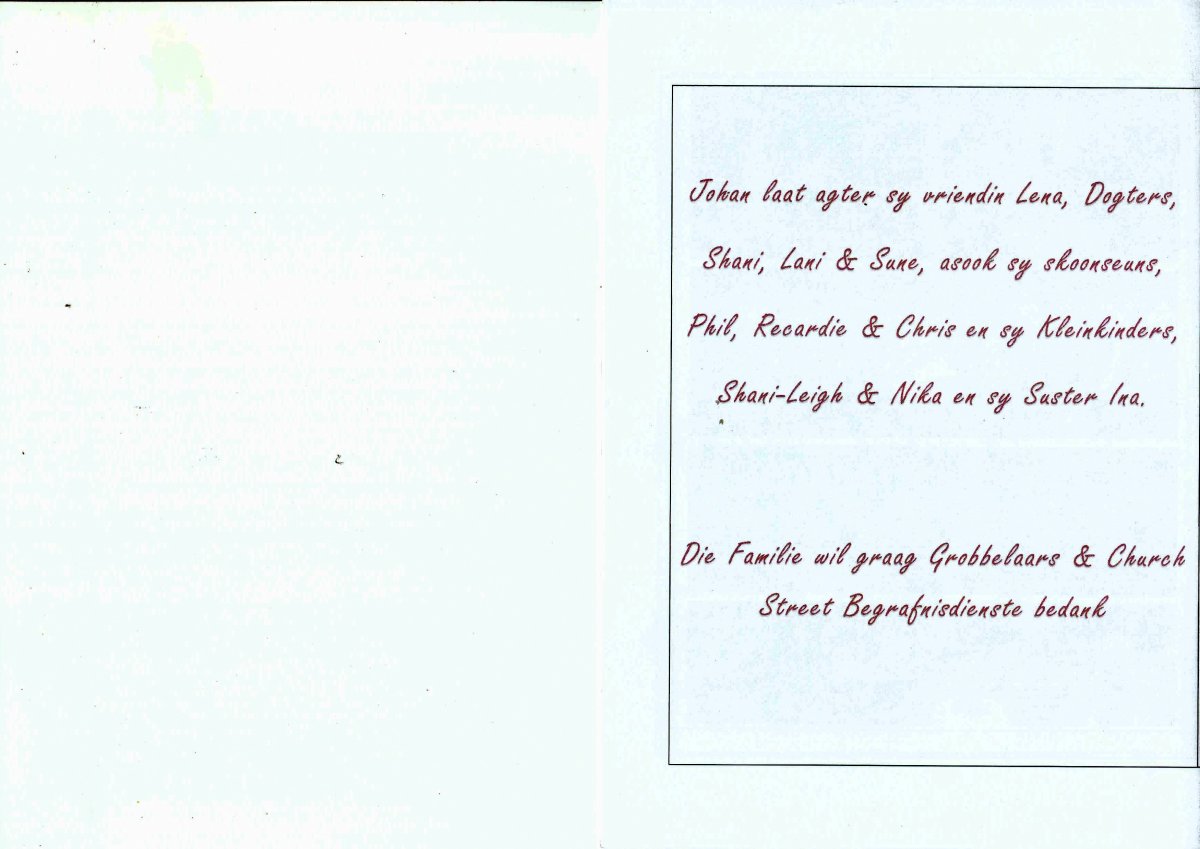 Johan laat agter sy vriendin Lena, Dogters,
Shani, Lani & Sune, asook sy skoonseuns,
Phil, Recardie & Chris en sy Kleinkinders,
Shani-Leigh & Nika en sy Suster Ina.
Die Familie wil graag Grobbelaars & Church
Street Begrafnisdienste bedank